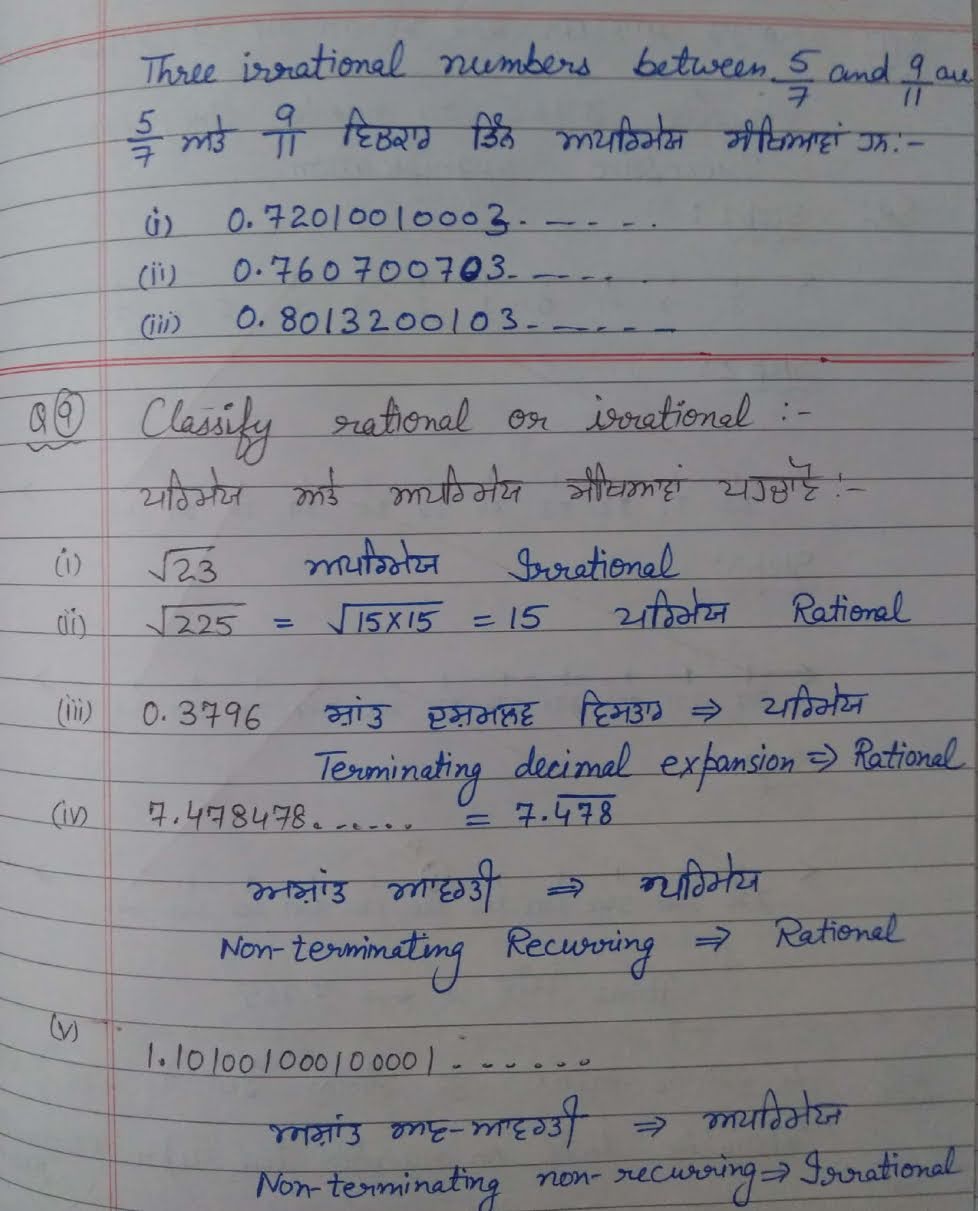 Three irrational numbers between 5/7 and 9/11 are
5/7 ਅਤੇ 9/11 ਵਿਚਕਾਰ ਤਿੰਨ ਅਪਰਿਮੇਯ ਸੰਖਿਆਵਾਂ ਹਨ:-
(i) 0.72010010003------
(ii) 0.760700703-----
(iii) 0.8013200103------
Q9 Classify rational or irrational :-
ਪਰਿਮੇਯ ਅਤੇ ਅਪਰਿਮੇਯ ਸੰਖਿਆਵਾਂ ਪਹਚਾਣੋ :-
(i) √23 ਅਪਰਿਮੇਯ Irrational
(ii) √225 = √15×15 = 15 ਪਰਿਮੇਯ Rational
(iii) 0.3796 ਸ਼ਾਂਤ ਦਸ਼ਮਲਵ ਵਿਸਤਾਰ ⇒ ਪਰਿਮੇਯ
Terminating decimal expansion ⇒ Rational
(iv) 7.478478...... = 7.4̅7̅8̅
ਅਸ਼ਾਂਤ ਆਵਰਤੀ ⇒ ਪਰਿਮੇਯ
Non-terminating Recurring ⇒ Rational
(v)
1.101001000100001......
ਅਸ਼ਾਂਤ ਅਣ-ਆਵਰਤੀ ⇒ ਅਪਰਿਮੇਯ
Non-terminating non-recurring ⇒ Irrational